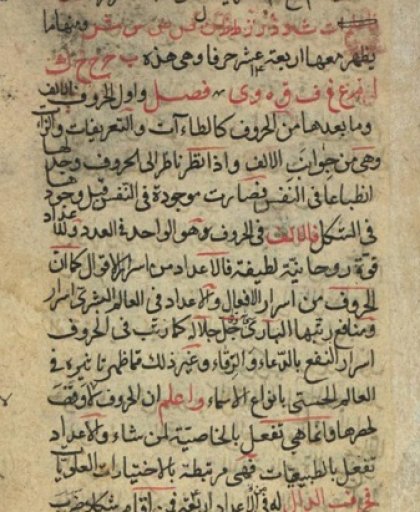 ت ث د ذ ر ز ط ظ ل ن ص ض س ش ومنها ما
يظهر معها اربعة عشر حرفا وهي هذه ب ج ح خ ك
م ع غ ف ق ه و ي فصل واول الحروف الالف
وما بعدها من الحروف كالطاءات والتعريفات
وهي من جوانب الالف واذا نظر ناظر الى الحروف وجد لها
انطباعا في النفس فصارت موجودة في النفس قبل وجودها
في الشكل فالالف في الحروف وهو الواحد في العدد والاعداد
قوة روحانية لطيفة فالاعداد من اسرار الاقوال كما ان
الحروف من اسرار الافعال والاعداد في العالم البشري اسرار
ومنافع رتبها الباري جل جلاله كما رتب في الحروف
اسرار النفع بالدعاء والرقاء وغير ذلك مما ظهر تاثيره في
العالم الحسي بانواع الاسماء واعلم ان الحروف لا وقت
لحصرها وانما هي تفعل بالخاصية لمن شاء والاعداد
تفعل بالطبيعيات فهي مرتبطة بالاختيارات العلويات
حرف الدال له من الاعداد اربعة